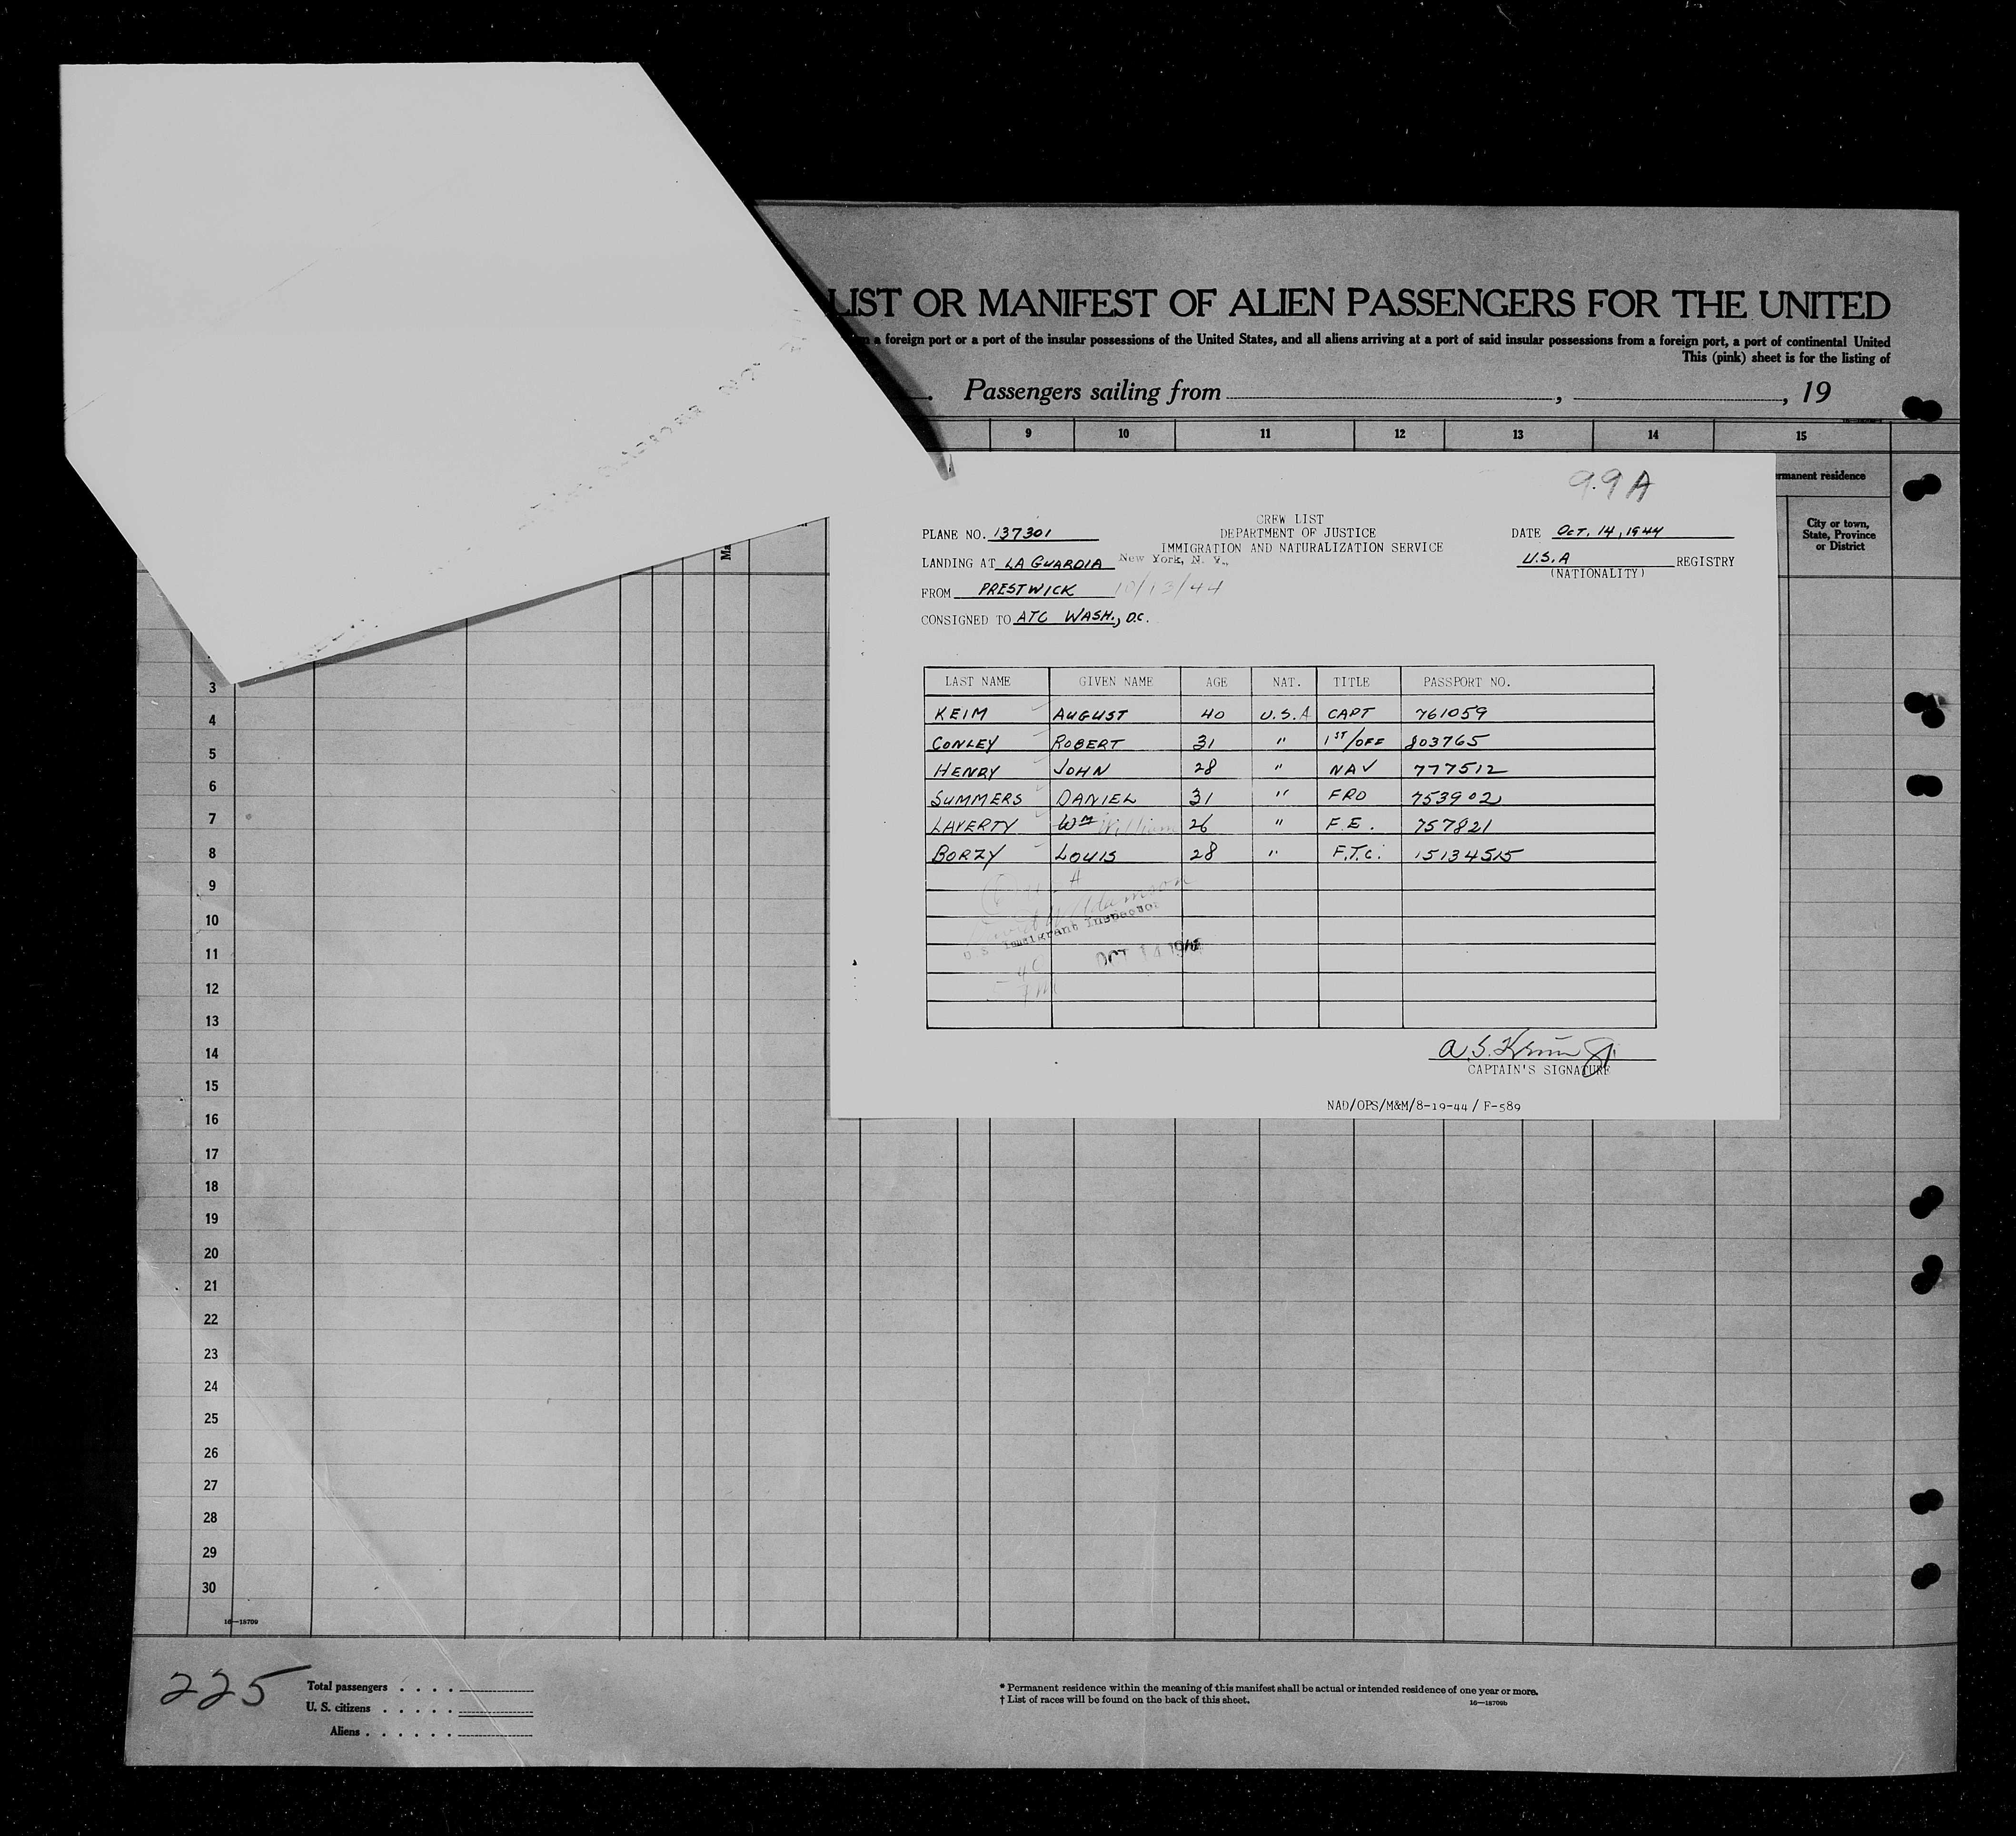 LIST OR MANIFEST OF ALIEN PASSENGERS FOR THE UNITED
a foreign port or a port of the insular possessions of the United States, and all aliens arriving at a port of said insular possessions from a foreign port, a port of continental United
This (pink) sheet is for the listing of
. Passengers sailing from , , 19
9 10 11 12 13 14 15
rmanent residence
City or town,
State, Province
or District
Ma
99A
CREW LIST
PLANE NO. 137301 DEPARTMENT OF JUSTICE DATE OCT. 14, 1944
IMMIGRATION AND NATURALIZATION SERVICE
LANDING AT LA GUARDIA New York, N. Y., U.S.A REGISTRY
(NATIONALITY)
FROM PRESTWICK 10/13/44
CONSIGNED TO ATC WASH., D.C.
LAST NAME GIVEN NAME AGE NAT. TITLE PASSPORT NO.
KEIM AUGUST 40 U.S.A CAPT 761059
CONLEY ROBERT 31 " 1ST/OFF 803765
HENRY JOHN 28 " NAV 777512
SUMMERS DANIEL 31 " FRO 753902
LAVERTY WM William 26 " F.E. 757821
BORZY LOUIS 28 " F.T.C. 15134515
U. S. Immigrant Inspector
OCT 14 1944
CAPTAIN'S SIGNATURE
NAD/OPS/M&M/8-19-44 / F-589
3
4
5
6
7
8
9
10
11
12
13
14
15
16
17
18
19
20
21
22
23
24
25
26
27
28
29
30
16—18709
225
Total passengers . . . .
U. S. citizens . . . . .
Aliens . . . . . .
* Permanent residence within the meaning of this manifest shall be actual or intended residence of one year or more.
† List of races will be found on the back of this sheet.
16—18709b